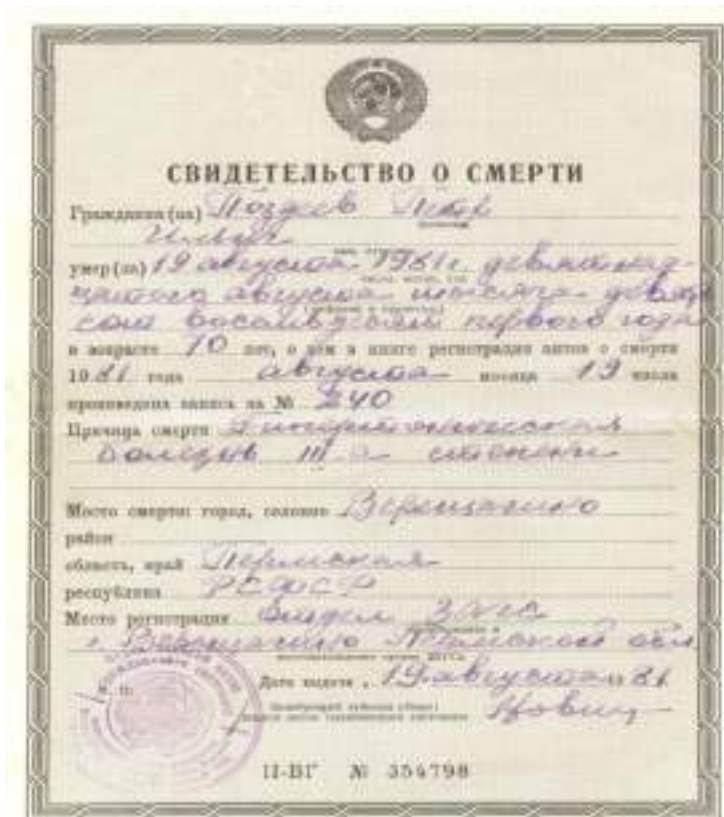 СВИДЕТЕЛЬСТВО О СМЕРТИ
Гражданин(ка) Поздеев Петр
Ильич
умер(ла) 19 августа 1981 г. девятнад-
цатого августа тысяча девять
сот восемьдесят первого года
в возрасте 70 лет, о чем в книге регистрации актов о смерти
1981 года августа месяца 19 числа
произведена запись за № 240
Причина смерти Гипертоническая
болезнь III а степени
Место смерти: город, селение Верещагино
район
область, край Пермская
республика РСФСР
Место регистрации отдел ЗАГС
г. Верещагино Пермской обл
Дата выдачи 19 августа 1981
М. П.
II-ВГ № 354798